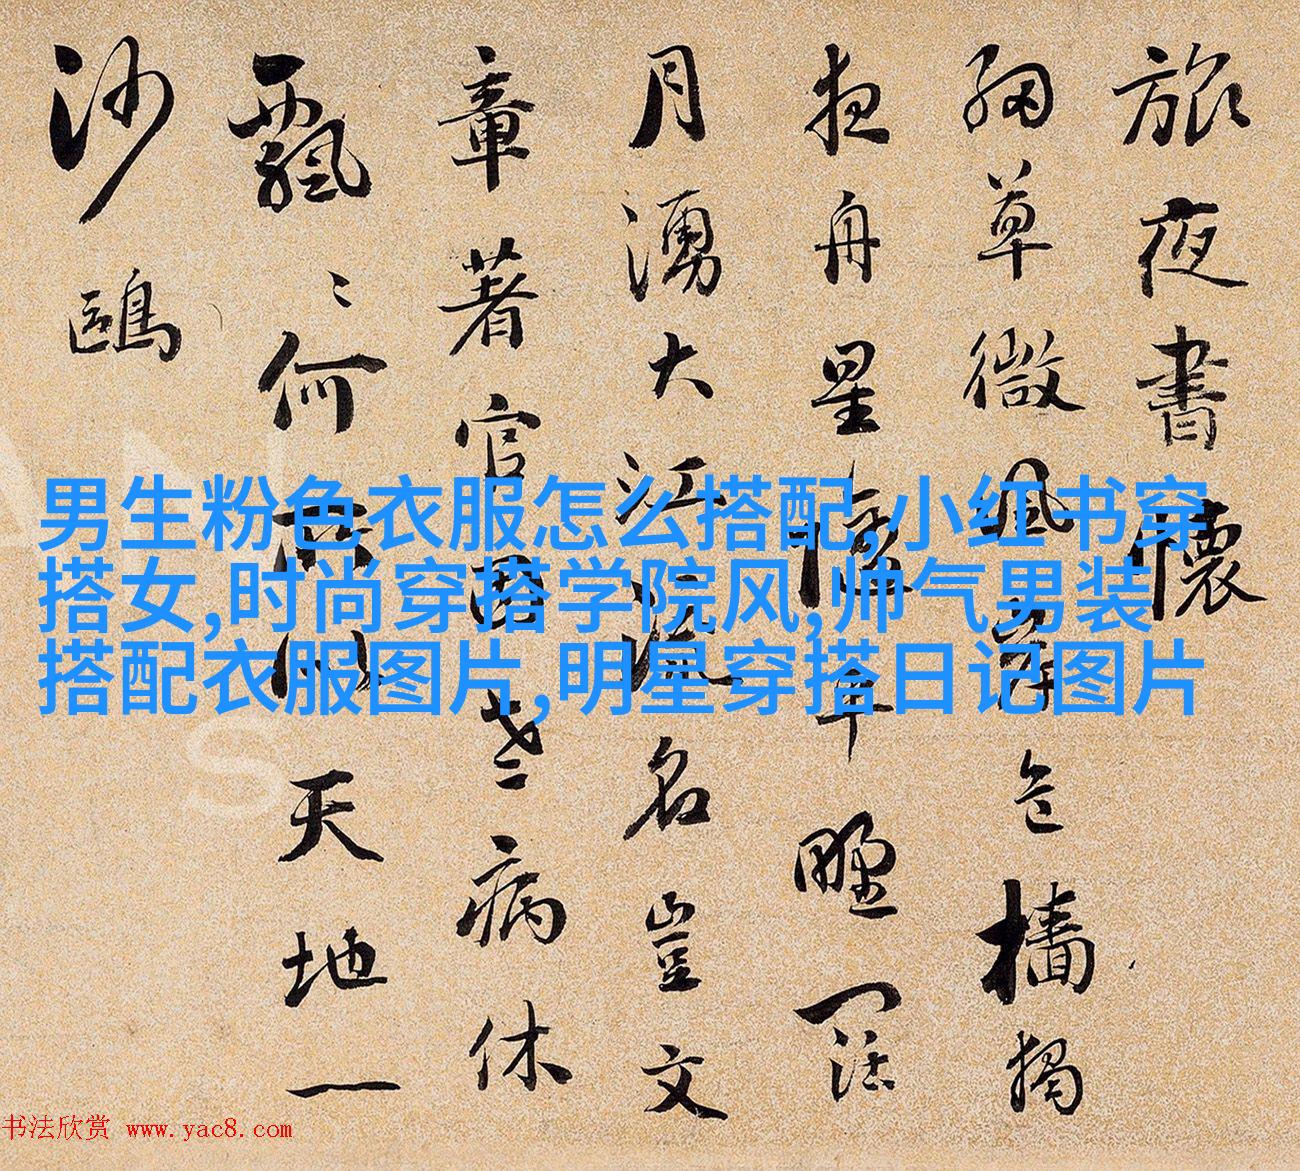 旅夜書懷
細草微風岸危檣獨
夜舟星平野闊
月湧大江流名豈文
章著官因老病休
飄〻何所似天地一
沙鷗
男生粉色衣服怎么搭配,小红书穿
搭女,时尚穿搭学院风,帅气男装
搭配衣服图片,明星穿搭日记图片
书法欣赏 www.yac8.com